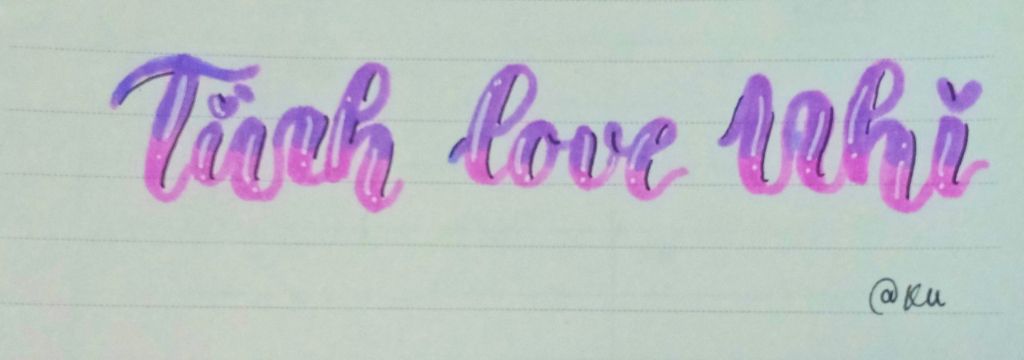 Tĩnh love Nhi
@Ku